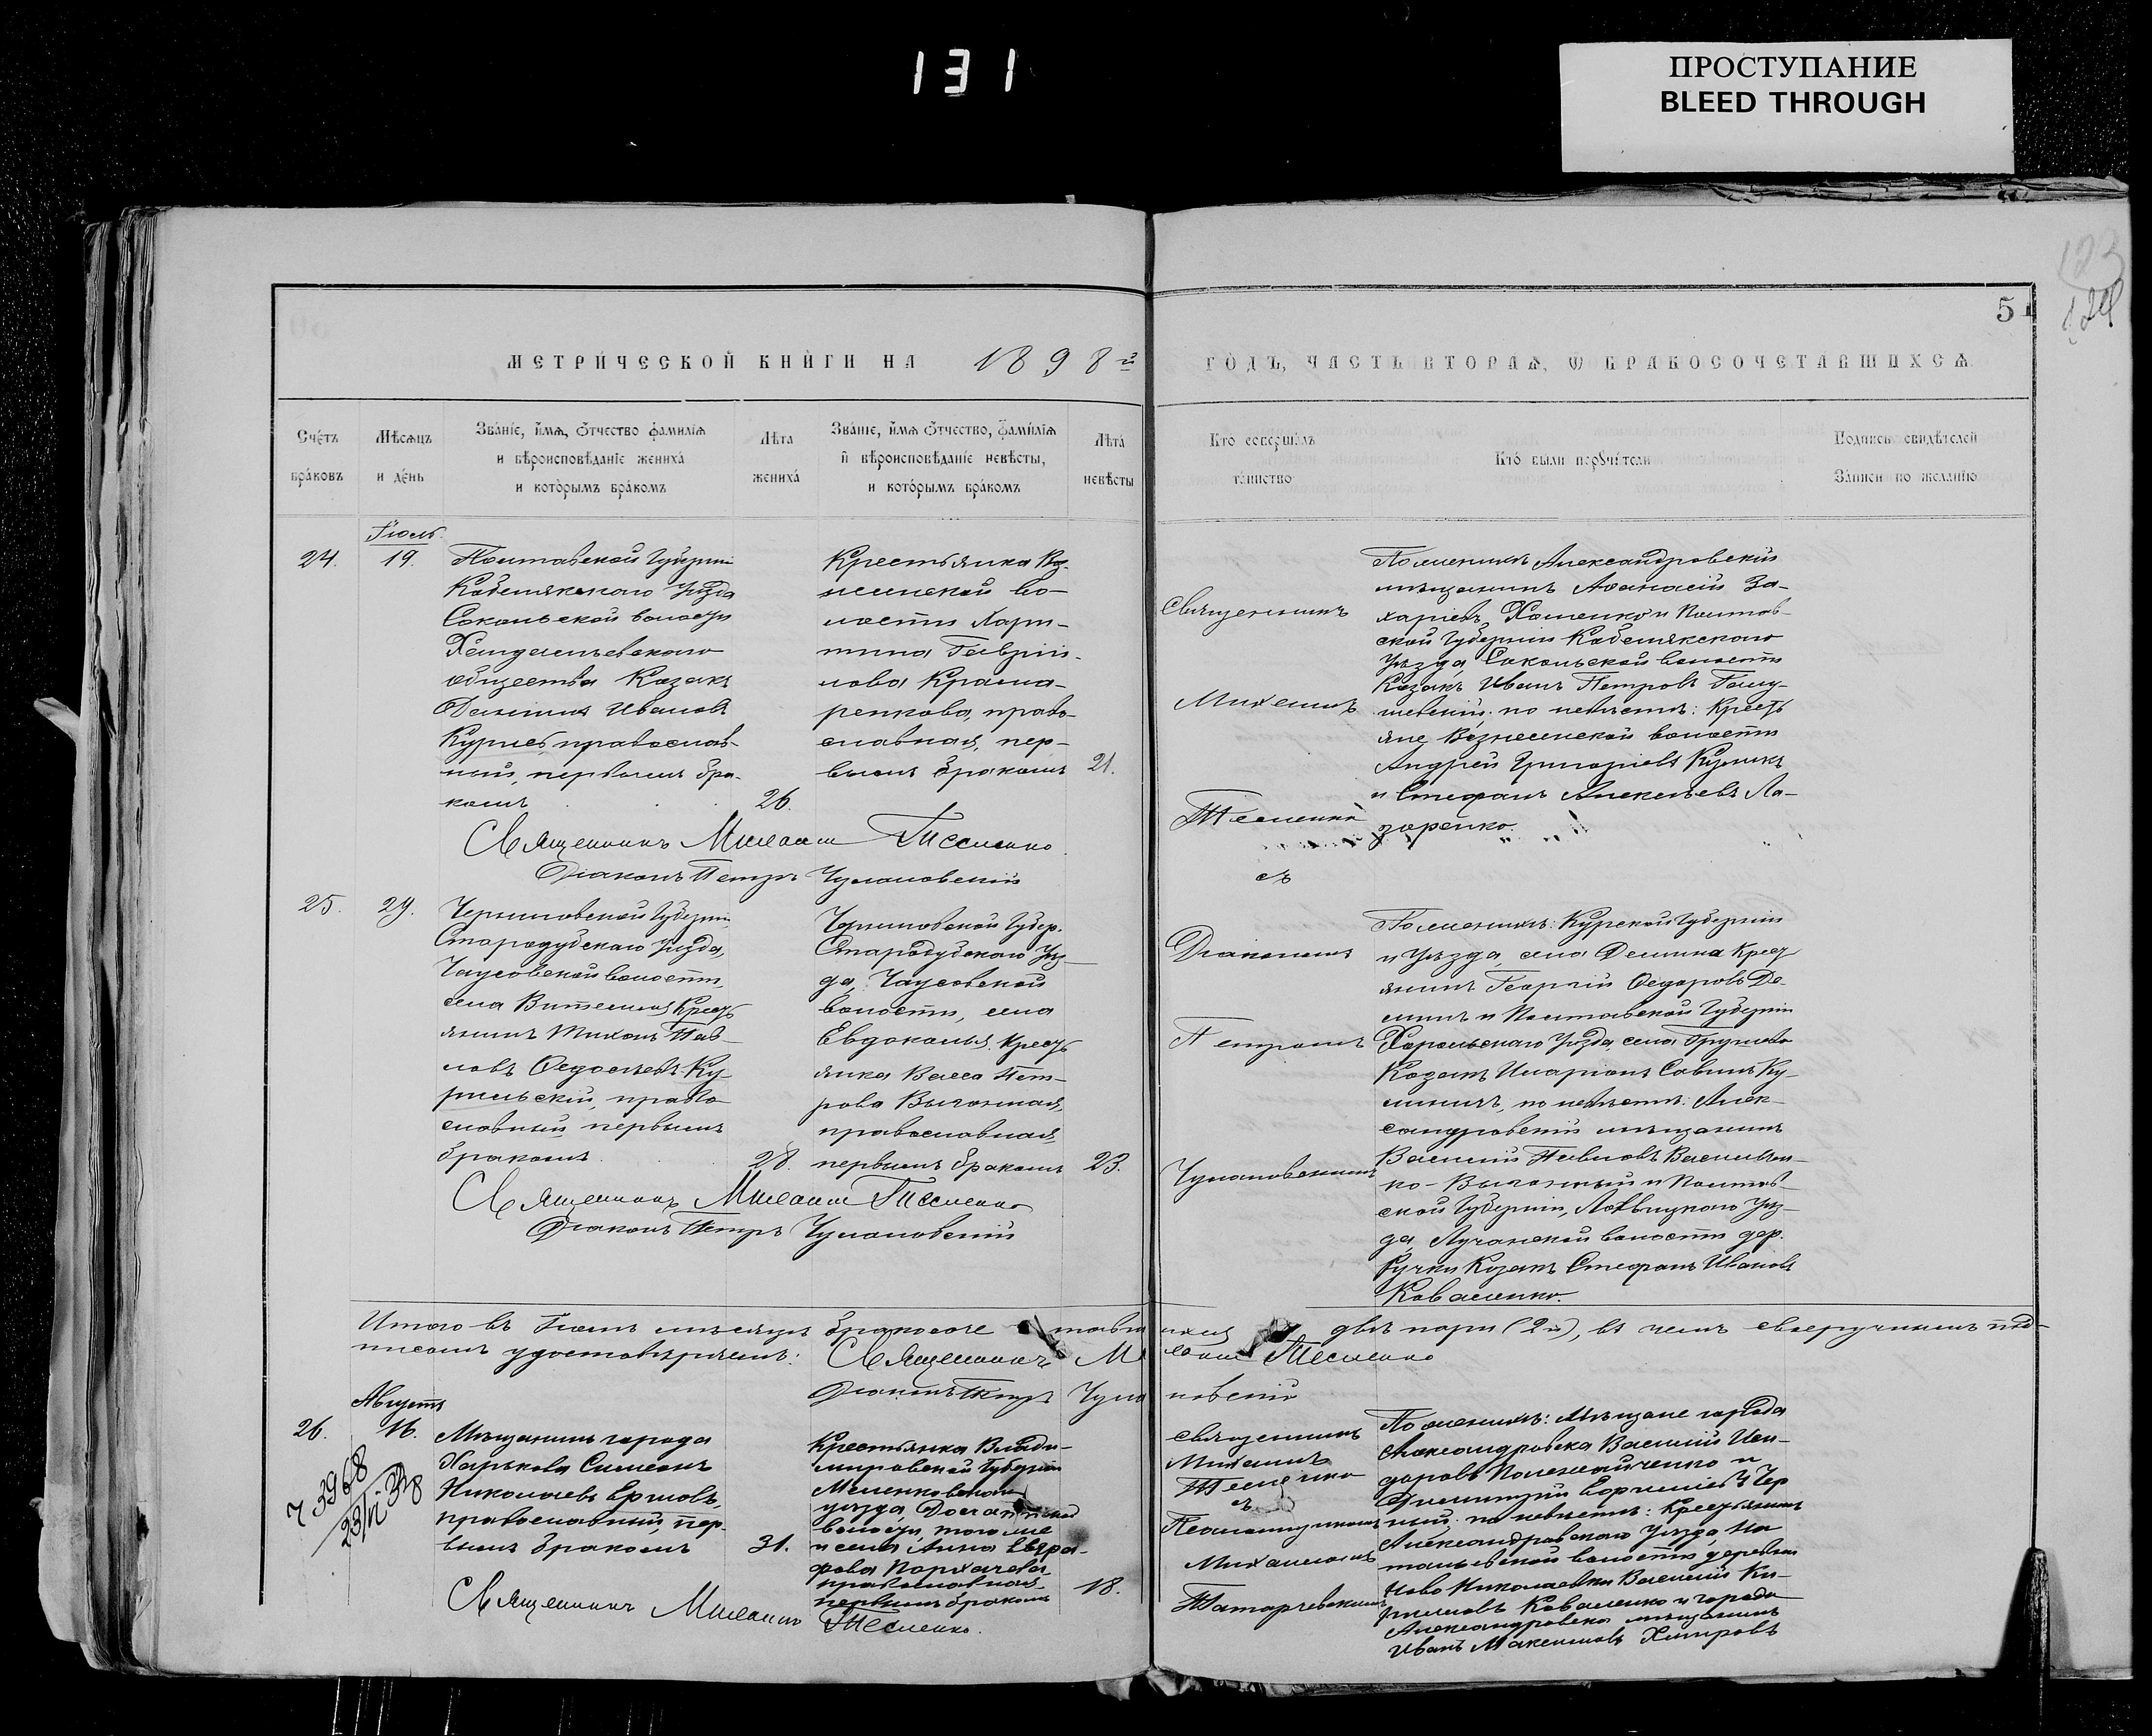 131
ПРОСТУПАНИЕ
BLEED THROUGH
123
124
51
МЕТРИ́ЧЕСКОЙ КНИ́ГИ НА 1898й
ГО́ДЪ, ЧАСТЬ ВТОРАѦ, Ѡ БРАКОСОЧЕТАВШИХСѦ
Сче́тъ бра́ковъ
Мѣсѧцъ и де́нь
Зва́нїе, и́мѧ, ѻ́тчество фами́лїѧ
и вѣроисповѣ́данїе жениха̀
и кото́рымъ бра́комъ
Лѣта жениха̀
Зва́нїе, и́мѧ ѻ́тчество, фами́лїѧ
и҆ вѣроисповѣ́данїе невѣ́сты,
и кото́рымъ бра́комъ
Лѣта̀ невѣ́сты
Кто соверша́лъ
та́инство
Кто̀ были порꙋчи́тели
Подпись свидѣ́телей
За́писи по желанїю
Іюль
24.
19.
Полтавской Губерніи
Кобелякскаго Уѣзда
Сокольской волости
общества Козакъ
Ивановъ
православ-
ный, первымъ бра-
комъ
26.
Крестьянка Воз-
несенской во-
лости Хари-
тина Гаврії-
лова Крама-
ренкова, право-
славная, пер-
вымъ бракомъ
21.
Священникъ
Михаилъ
Тесленко
съ
По женихѣ: Александровскій
мѣщанинъ Афанасій За-
харіевъ Хоменко и Полтав-
ской Губерніи Кобелякскаго
Уѣзда, Сокольской волости
Козакъ Иванъ Петровъ
по невѣстѣ: Кресть
яне Вознесенской волости
Андрей Григоріевъ
и Стефанъ Алексѣевъ Ла-
заренко.
Священникъ Михаилъ Тесленко
Діаконъ Петръ Чулановскій
25.
29.
Черниговской Губерніи
Стародубскаго Уѣзда,
Чаусовской волости,
села Витемля Кресть
янинъ Тихонъ Пав-
ловъ
православный
первымъ
бракомъ
28.
Черниговской Губер.
Стародубскаго Уѣз-
да, Чаусовской
волости, села
Евдоколья Кресть
янка Васса Пет-
рова Выгонная,
православная,
первымъ бракомъ
23.
Діакономъ
Петромъ
Чулановскимъ
По женихѣ: Курской Губерніи
и Уѣзда, села Демина Крест
янинъ Георгій Федоровъ Де-
минъ и Полтавской Губерніи
Хорольскаго Уѣзда села
Козакъ Иларіонъ Савинъ
по невѣстѣ: Алек-
сандровскій мѣщанинъ
Василій Павловъ Васильен-
ко-Выгонный и Полтав-
ской Губерніи, Лохвицкаго Уѣз-
да, Лучанской волости дер.
Ручки Козакъ Стефанъ Ивановъ
Коваленко.
Священникъ Михаилъ Тесленко
Діаконъ Петръ Чулановскій
Итого въ Іюлѣ мѣсяцѣ бракосочетавшихся двѣ пары (2 п), въ чемъ своеручнымъ под-
писомъ удостовѣряемъ: Священникъ Михаилъ Тесленко
Діаконъ Петръ Чулановскій
Августъ
26.
16.
73968
23/VI 38
Мѣщанинъ города
Харькова Симеонъ
Николаевъ
православный, пер-
вымъ бракомъ
31.
Крестьянка Влади-
мировской Губерніи
Меленковскаго
уѣзда,
волости, того же
и села Анна
православная,
первымъ бракомъ
18.
Священникъ
Михаилъ
Тесленко
съ
Псаломщикомъ
Михаиломъ
Татарчевскимъ
По женихѣ: Мѣщане города
Александровска Василій Иси-
доровъ и
Димитрій
по невѣстѣ: Крестьянинъ
Александровскаго Уѣзда, На
тальевской волости деревни
Ново Николаевки Василій Ки-
рилловъ Коваленко и города
Александровска мѣщанинъ
Иванъ Максимовъ Хитровъ
Священникъ Михаилъ Тесленко.